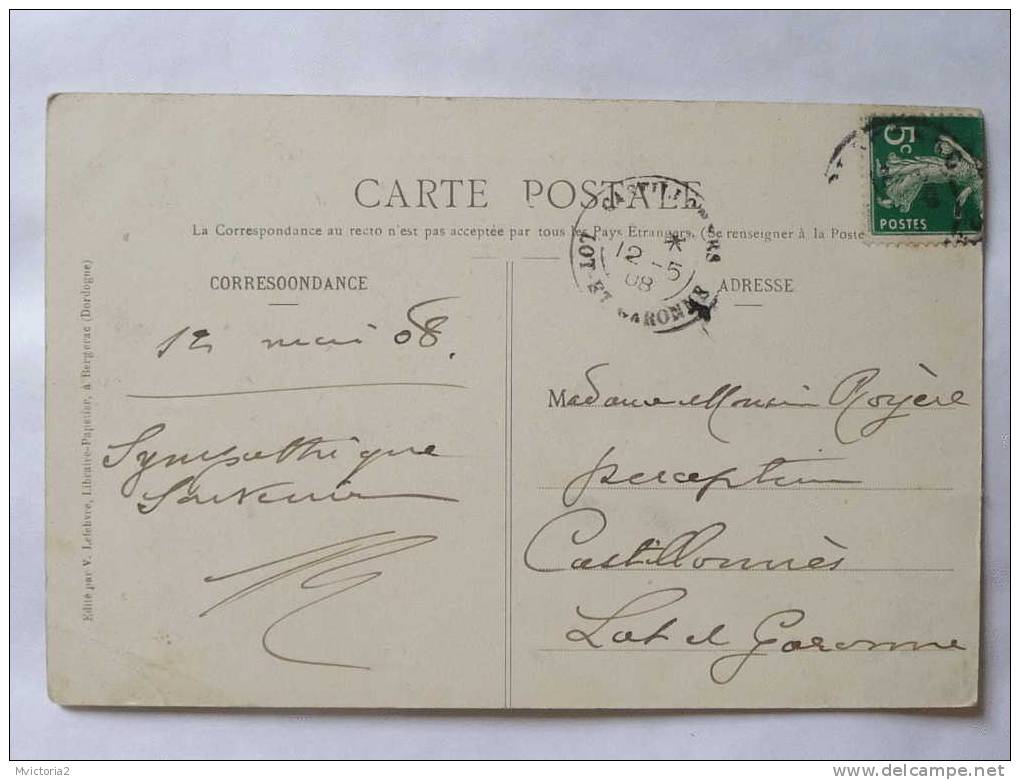 CARTE POSTALE
La Correspondance au recto n'est pas acceptée par tous les Pays Etrangers. (Se renseigner à la Poste
CORRESOONDANCE
ADRESSE
12 mai 08.
Sympathique
Souvenir
Madame Royère
perception
Castillonnès
Lot et Garonne
Edité par V. Lefebvre, Libraire-Papetier, à Bergerac (Dordogne)
5c
POSTES
CASTILLONNES
12 - 5
08
LOT-ET-GARONNE
Mvictoria2
delcampe.net